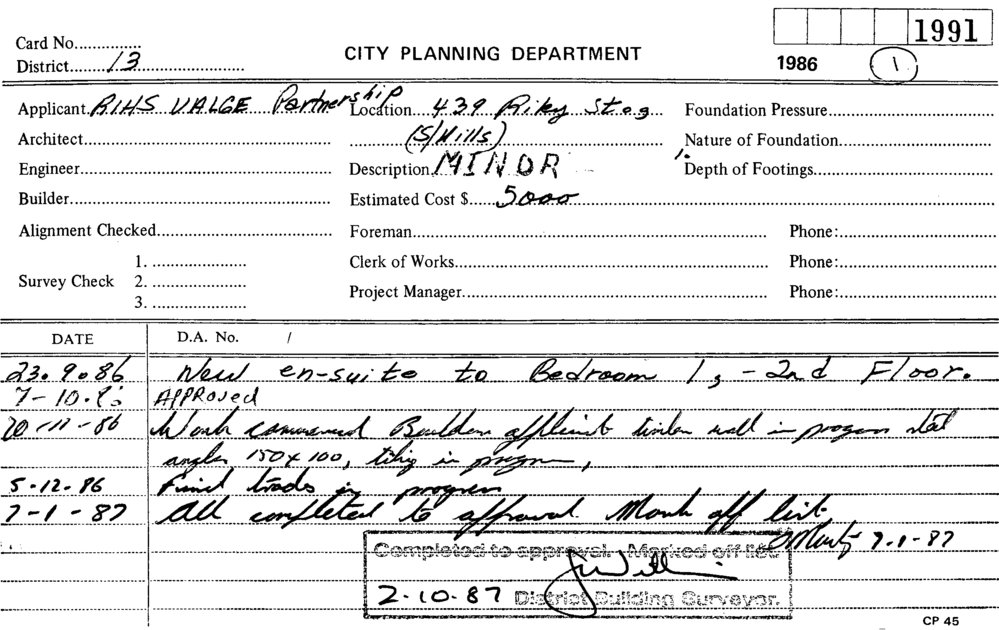 1991
Card No.
CITY PLANNING DEPARTMENT
District 13
1986 1
Applicant RIHS VALGE Partnership Location 439 Riley St Foundation Pressure
Architect (S/Hills) Nature of Foundation
Engineer Description MINOR Depth of Footings
Builder Estimated Cost $ 5000
Alignment Checked Foreman Phone:
1. Clerk of Works Phone:
Survey Check 2.
Project Manager Phone:
3.
DATE D.A. No. /
23.9.86 New en-suite to Bedroom 13 - 2nd Floor.
7-10. APPROVED
20-11-86 Work commenced Builder timber wall in progress steel
angles 150x100, tiling in progress,
5-12-86 Final trades in progress
7-1-87 All completed to approval Mark off list.
7-1-87
Completed to approval. Marked off list
2-10-87 District Building Surveyor.
CP 45